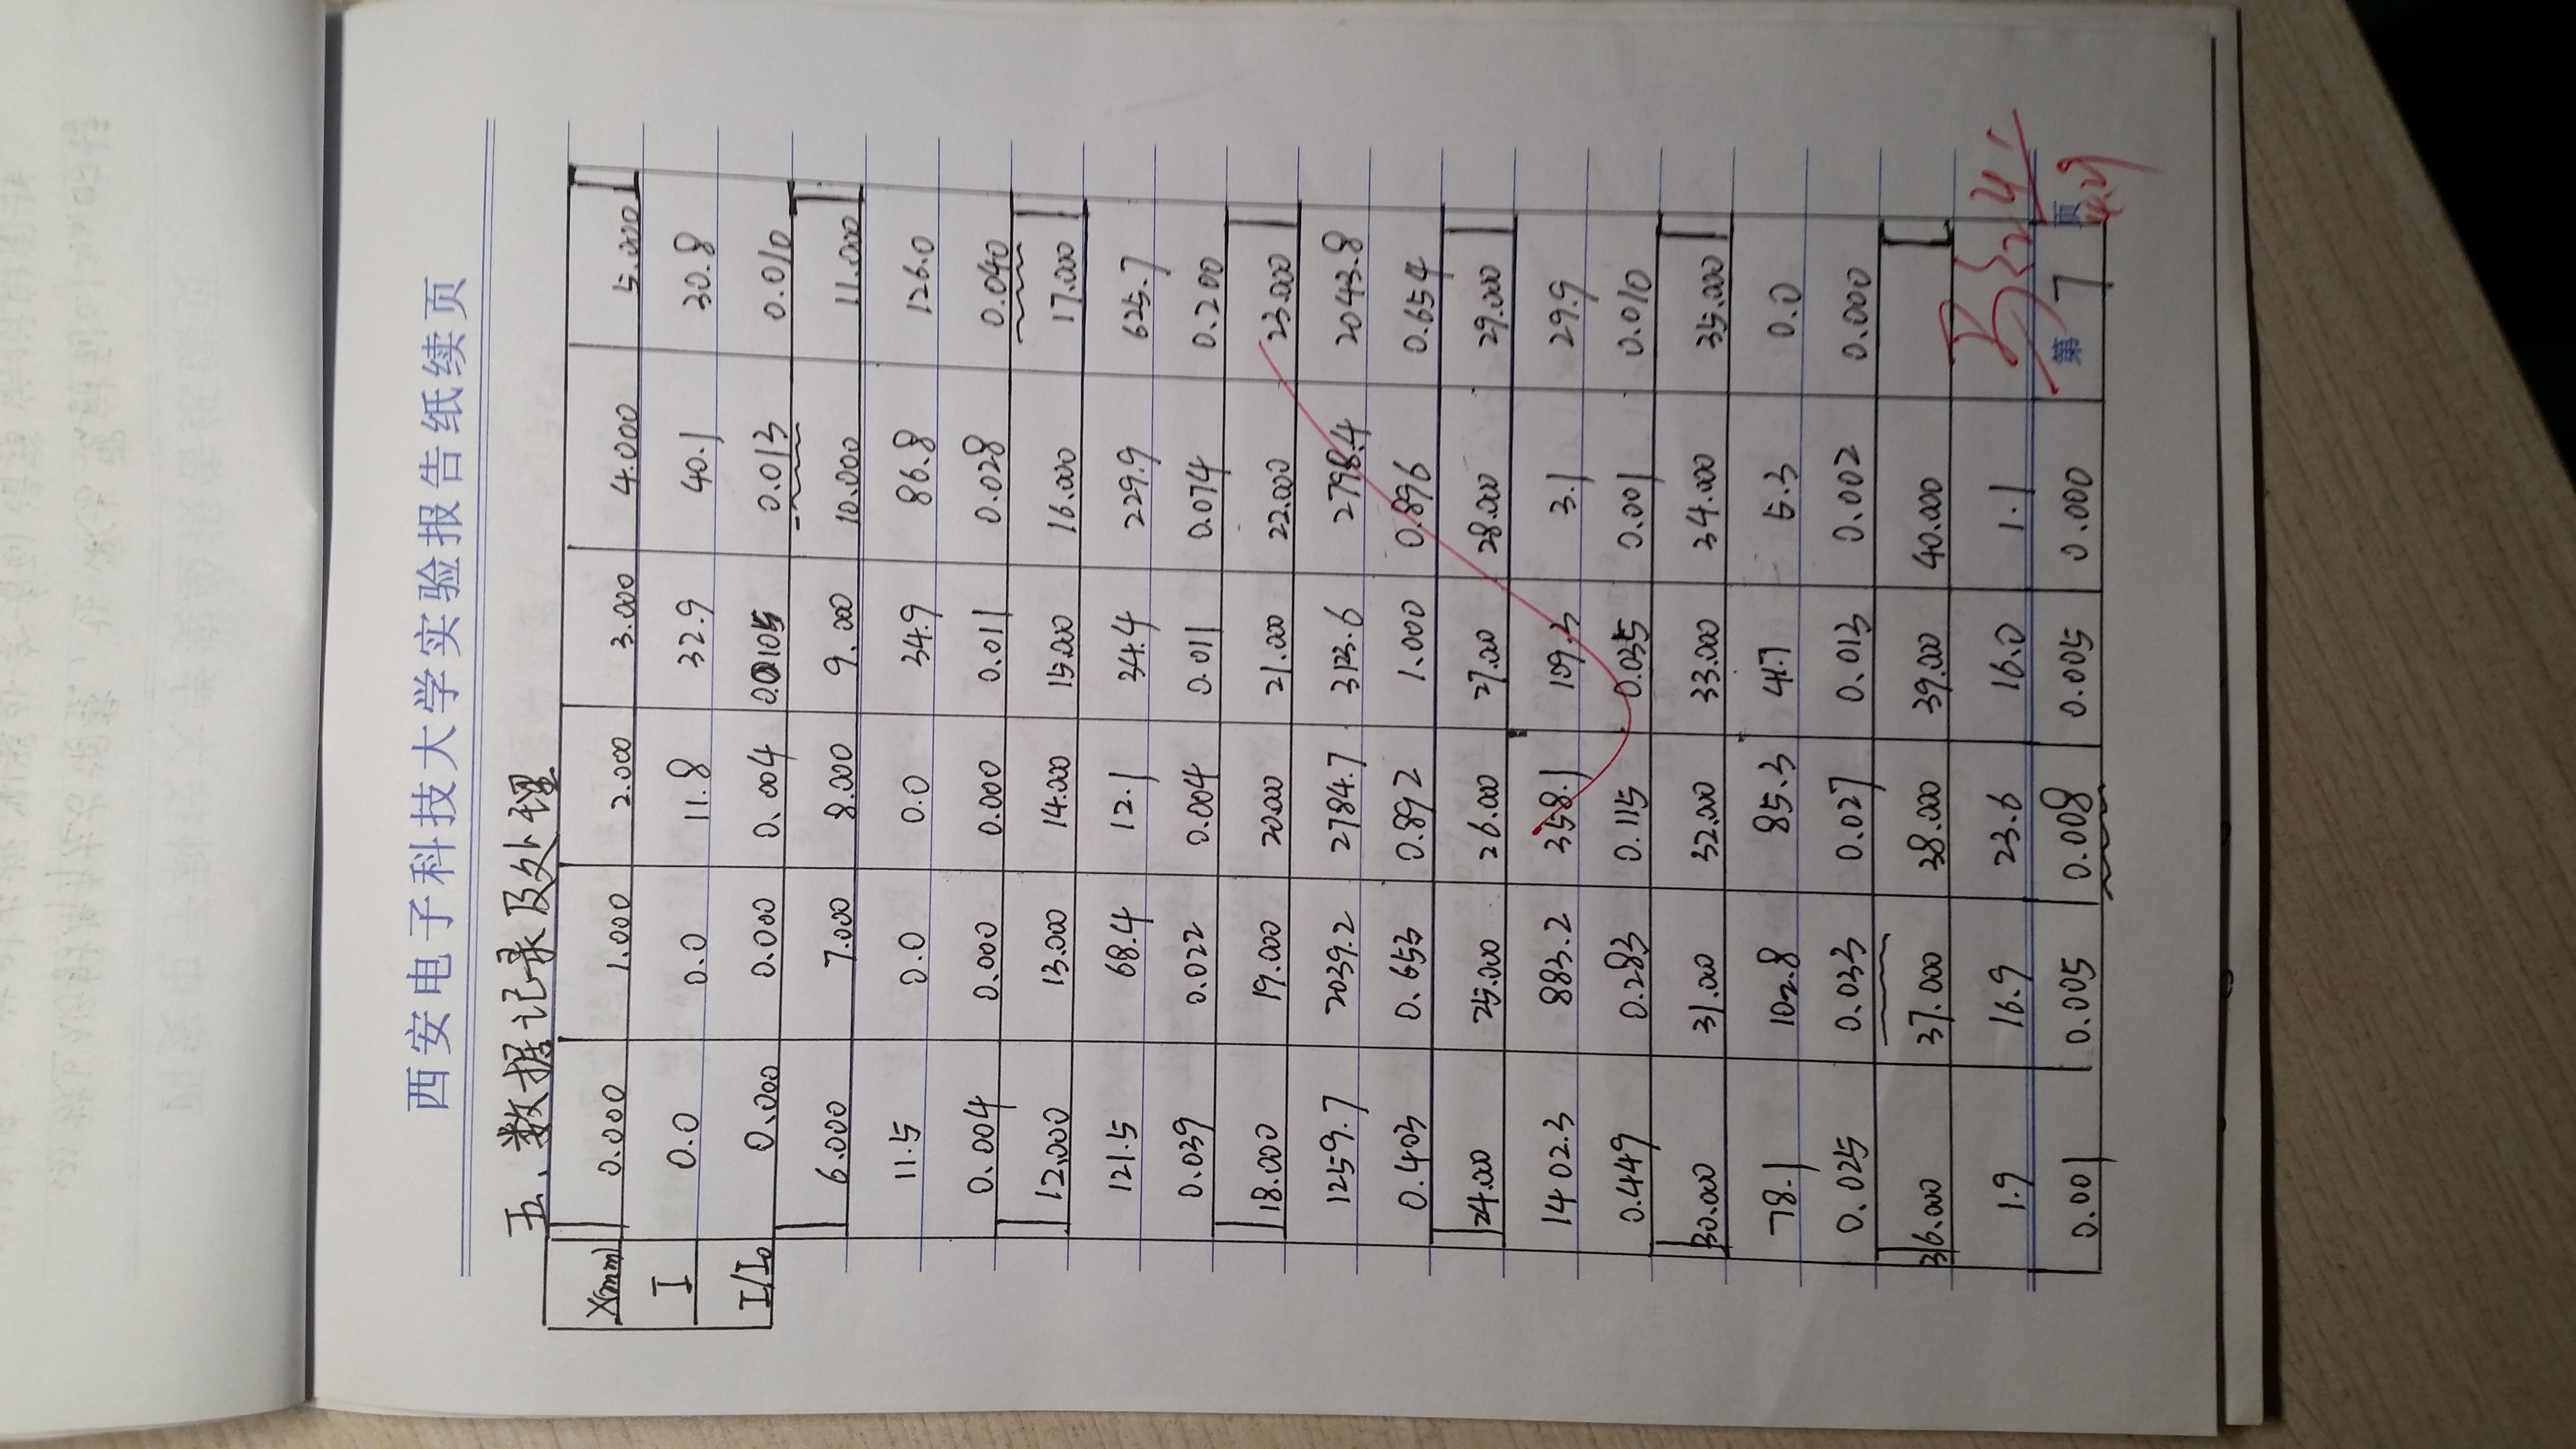 西安电子科技大学实验报告纸续页
五、数据记录及处理
X(mm) 0.000 1.000 2.000 3.000 4.000 5.000
I 0.0 0.0 11.8 32.9 40.1 30.8
I/I₀ 0.000 0.000 0.004 0.0105 0.013 0.010
6.000 7.000 8.000 9.000 10.000 11.000
11.5 0.0 0.0 34.9 86.8 126.0
0.004 0.000 0.000 0.011 0.028 0.040
12.000 13.000 14.000 15.000 16.000 17.000
121.5 68.4 12.1 34.4 229.9 625.7
0.039 0.022 0.004 0.011 0.074 0.200
18.000 19.000 20.000 21.000 22.000 23.000
1259.7 2039.2 2784.7 3123.6 2798.4 2043.8
0.403 0.653 0.892 1.000 0.896 0.654
24.000 25.000 26.000 27.000 28.000 29.000
1402.3 883.2 358.1 109.3 3.1 29.9
0.449 0.283 0.115 0.035 0.001 0.010
30.000 31.000 32.000 33.000 34.000 35.000
78.1 102.8 85.3 41.7 5.3 0.0
0.025 0.033 0.027 0.013 0.002 0.000
36.000 37.000 38.000 39.000 40.000
1.9 16.9 23.6 16.0 1.1
0.001 0.005 0.008 0.005 0.000
第 7 页
4.29